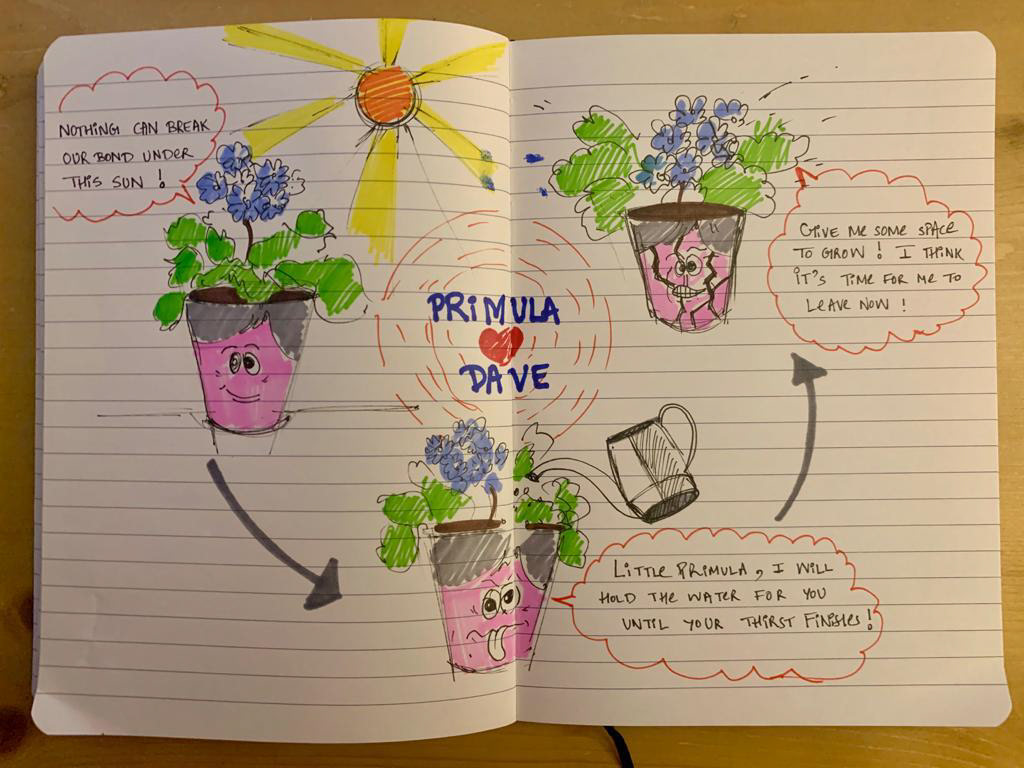 NOTHING CAN BREAK
OUR BOND UNDER
THIS SUN !
PRIMULA
DAVE
LITTLE PRIMULA , I WILL
HOLD THE WATER FOR YOU
UNTIL YOUR THIRST FINISHES !
GIVE ME SOME SPACE
TO GROW ! I THINK
IT'S TIME FOR ME TO
LEAVE NOW !